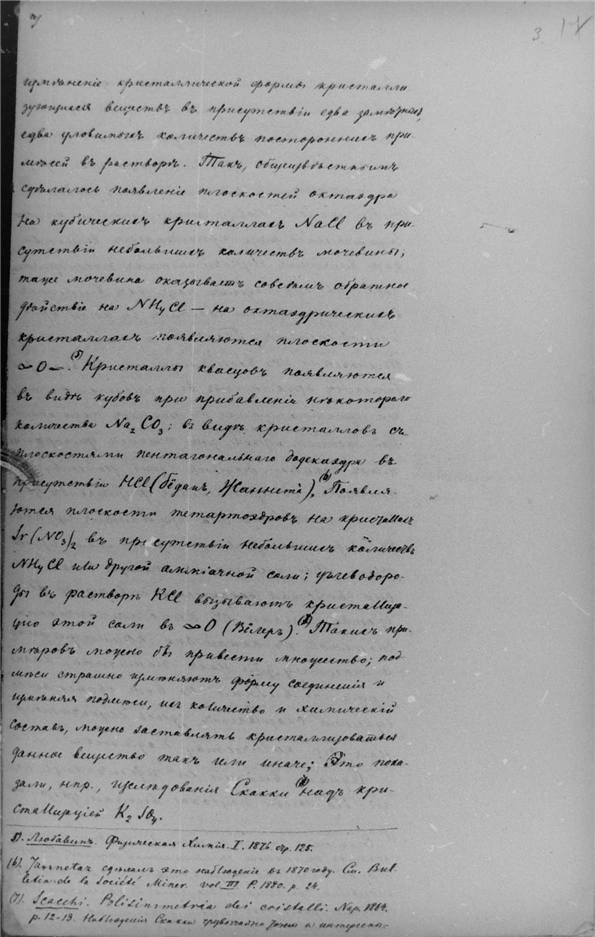 3. 17
измѣненіе кристаллической формы кристалли
зующихся веществъ въ присутствіи едва замѣтныхъ,
едва уловимыхъ количествъ постороннихъ при-
мѣсей въ растворѣ. Такъ, общеизвѣстнымъ
сдѣлалось появленіе плоскостей октаэдра
на кубическихъ кристаллахъ NaCl въ при-
сутствіи небольшихъ количествъ мочевины;
таже мочевина оказываетъ совсѣмъ обратное
дѣйствіе на NH4Cl — на октаэдрическихъ
кристаллахъ появляются плоскости
∞O∞.(5) Кристаллы квасцовъ появляются
въ видѣ кубовъ при прибавленіи нѣкотораго
количества Na2CO3; въ видѣ кристалловъ съ
плоскостями пентагональнаго додекаэдра въ
присутствіи HCl (Бёданъ, Жаннета).(6) Появля-
ются плоскости тетартоэдровъ на кристаллахъ
Sr(NO3)2 въ присутствіи небольшихъ количествъ
NH4Cl или другой амміачной соли; углеводоро-
ды въ растворѣ KCl вызываютъ кристаллиза-
цію этой соли въ ∞O (Вёлеръ). Такихъ при-
мѣровъ можно бы привести множество; под-
мѣси страшно измѣняютъ форму соединенія и
измѣняя подмѣси, ихъ количество и химическій
составъ, можно заставлять кристаллизоваться
данное вещество такъ или иначе; Это пока-
зали, нпр., изслѣдованія Скакки (7) надъ кри-
сталлизаціей K2SO4.
5). Любавинъ. Физическая Химія. I. 1876 стр. 125.
(6). Jannetaz сдѣлалъ это наблюденіе въ 1870 году. См. Bul-
letin de la Société Miner. vol III P. 1880. p. 24.
(7). Scacchi. Polisimmetria dei cristalli. Nap. 1864.
p. 12-13. Наблюденія Скакки чрезвычайно точны и интересны: